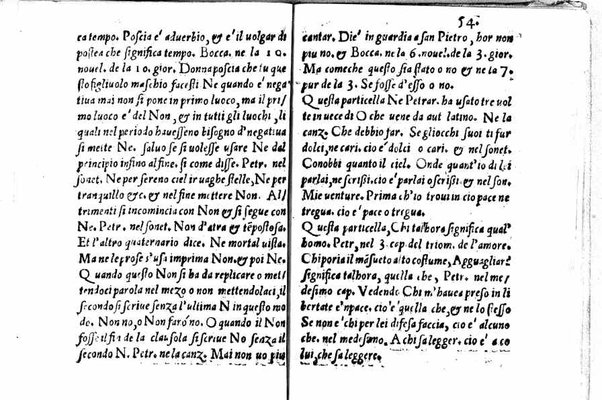 ca tempo. Poscia è aduerbio, & è il uolgar di
postea che significa tempo. Bocca. ne la 10.
nouel. de la 10. gior. Donna poscia che tu que
sto figliuolo maschio facesti Ne quando è nega
tiua mai non si pone in primo luoco, ma il pri
mo luoco è del Non, & in tutti gli luochi, li
quali nel periodo hauesseno bisogno d'negatiua
si meite Ne. saluo se si uolesse usare Ne dal
principio infino al fine. si come disse. Petr. nel
sonet. Ne per sereno ciel ir uaghe stelle, Ne per
tranquillo &c. & nel fine mettere Non. Al/
trimenti si incomincia con Non & si segue con
Ne. Petr. nel sonet. Non d'atra & tēpostosa.
Et l'altro quaternario dice. Ne mortal uista.
Ma ne le prose s'usa imprima Non & poi Ne.
Quando questo Non si ha da replicare o met/
tendoci parola nel mezo o non mettendolaci, il
secondo si scriue senza l'ultima N in questo mo
de. Non no, o Non farò no. O quando il Non
fosse il fin de la clausola si scriue No senza il
secondo N. Petr. ne la canz. Mai non uo piu
54.
cantar. Die' in guardia a san Pietro, hor non
piu no. & Bocca. ne la 6. nouel. de la 3. gior.
Ma come che questo sia stato o no & ne la 7.
pur de la 3. Se fosse d'esso o no.
Questa particella Ne Petrar. ha usato tre uol
te in uece di O che uene da aut latino. Ne la
canz. Che debbio far. Se gli occhi suoi ti fur
dolci, ne cari. cio è dolci o cari, & nel sonet.
Conobbi quanto il ciel. Onde quant'io di lei
parlai, ne scrissi. cio è parlai o scrissi. & nel son.
Mie uenture. Prima ch'io troui in cio pace ne
tregua. cio è pace o tregua.
Questa particella, Chi talhora significa qual'
homo. Petr, nel 3. cap. del triom. de l'amore.
Chi poria il māsueto alto costume, Agguagliar?
significa talhora, quella che, Petr. nel me/
desimo cap. Vedendo Chi m'hauea preso in li
bertate e'n pace. cio è quella che, & ne lo stesso
Se non è chi per lei difesa faccia, cio è alcuno
che. nel medesmo. A chi sa legger. cio è a co
lui, che sa leggere.